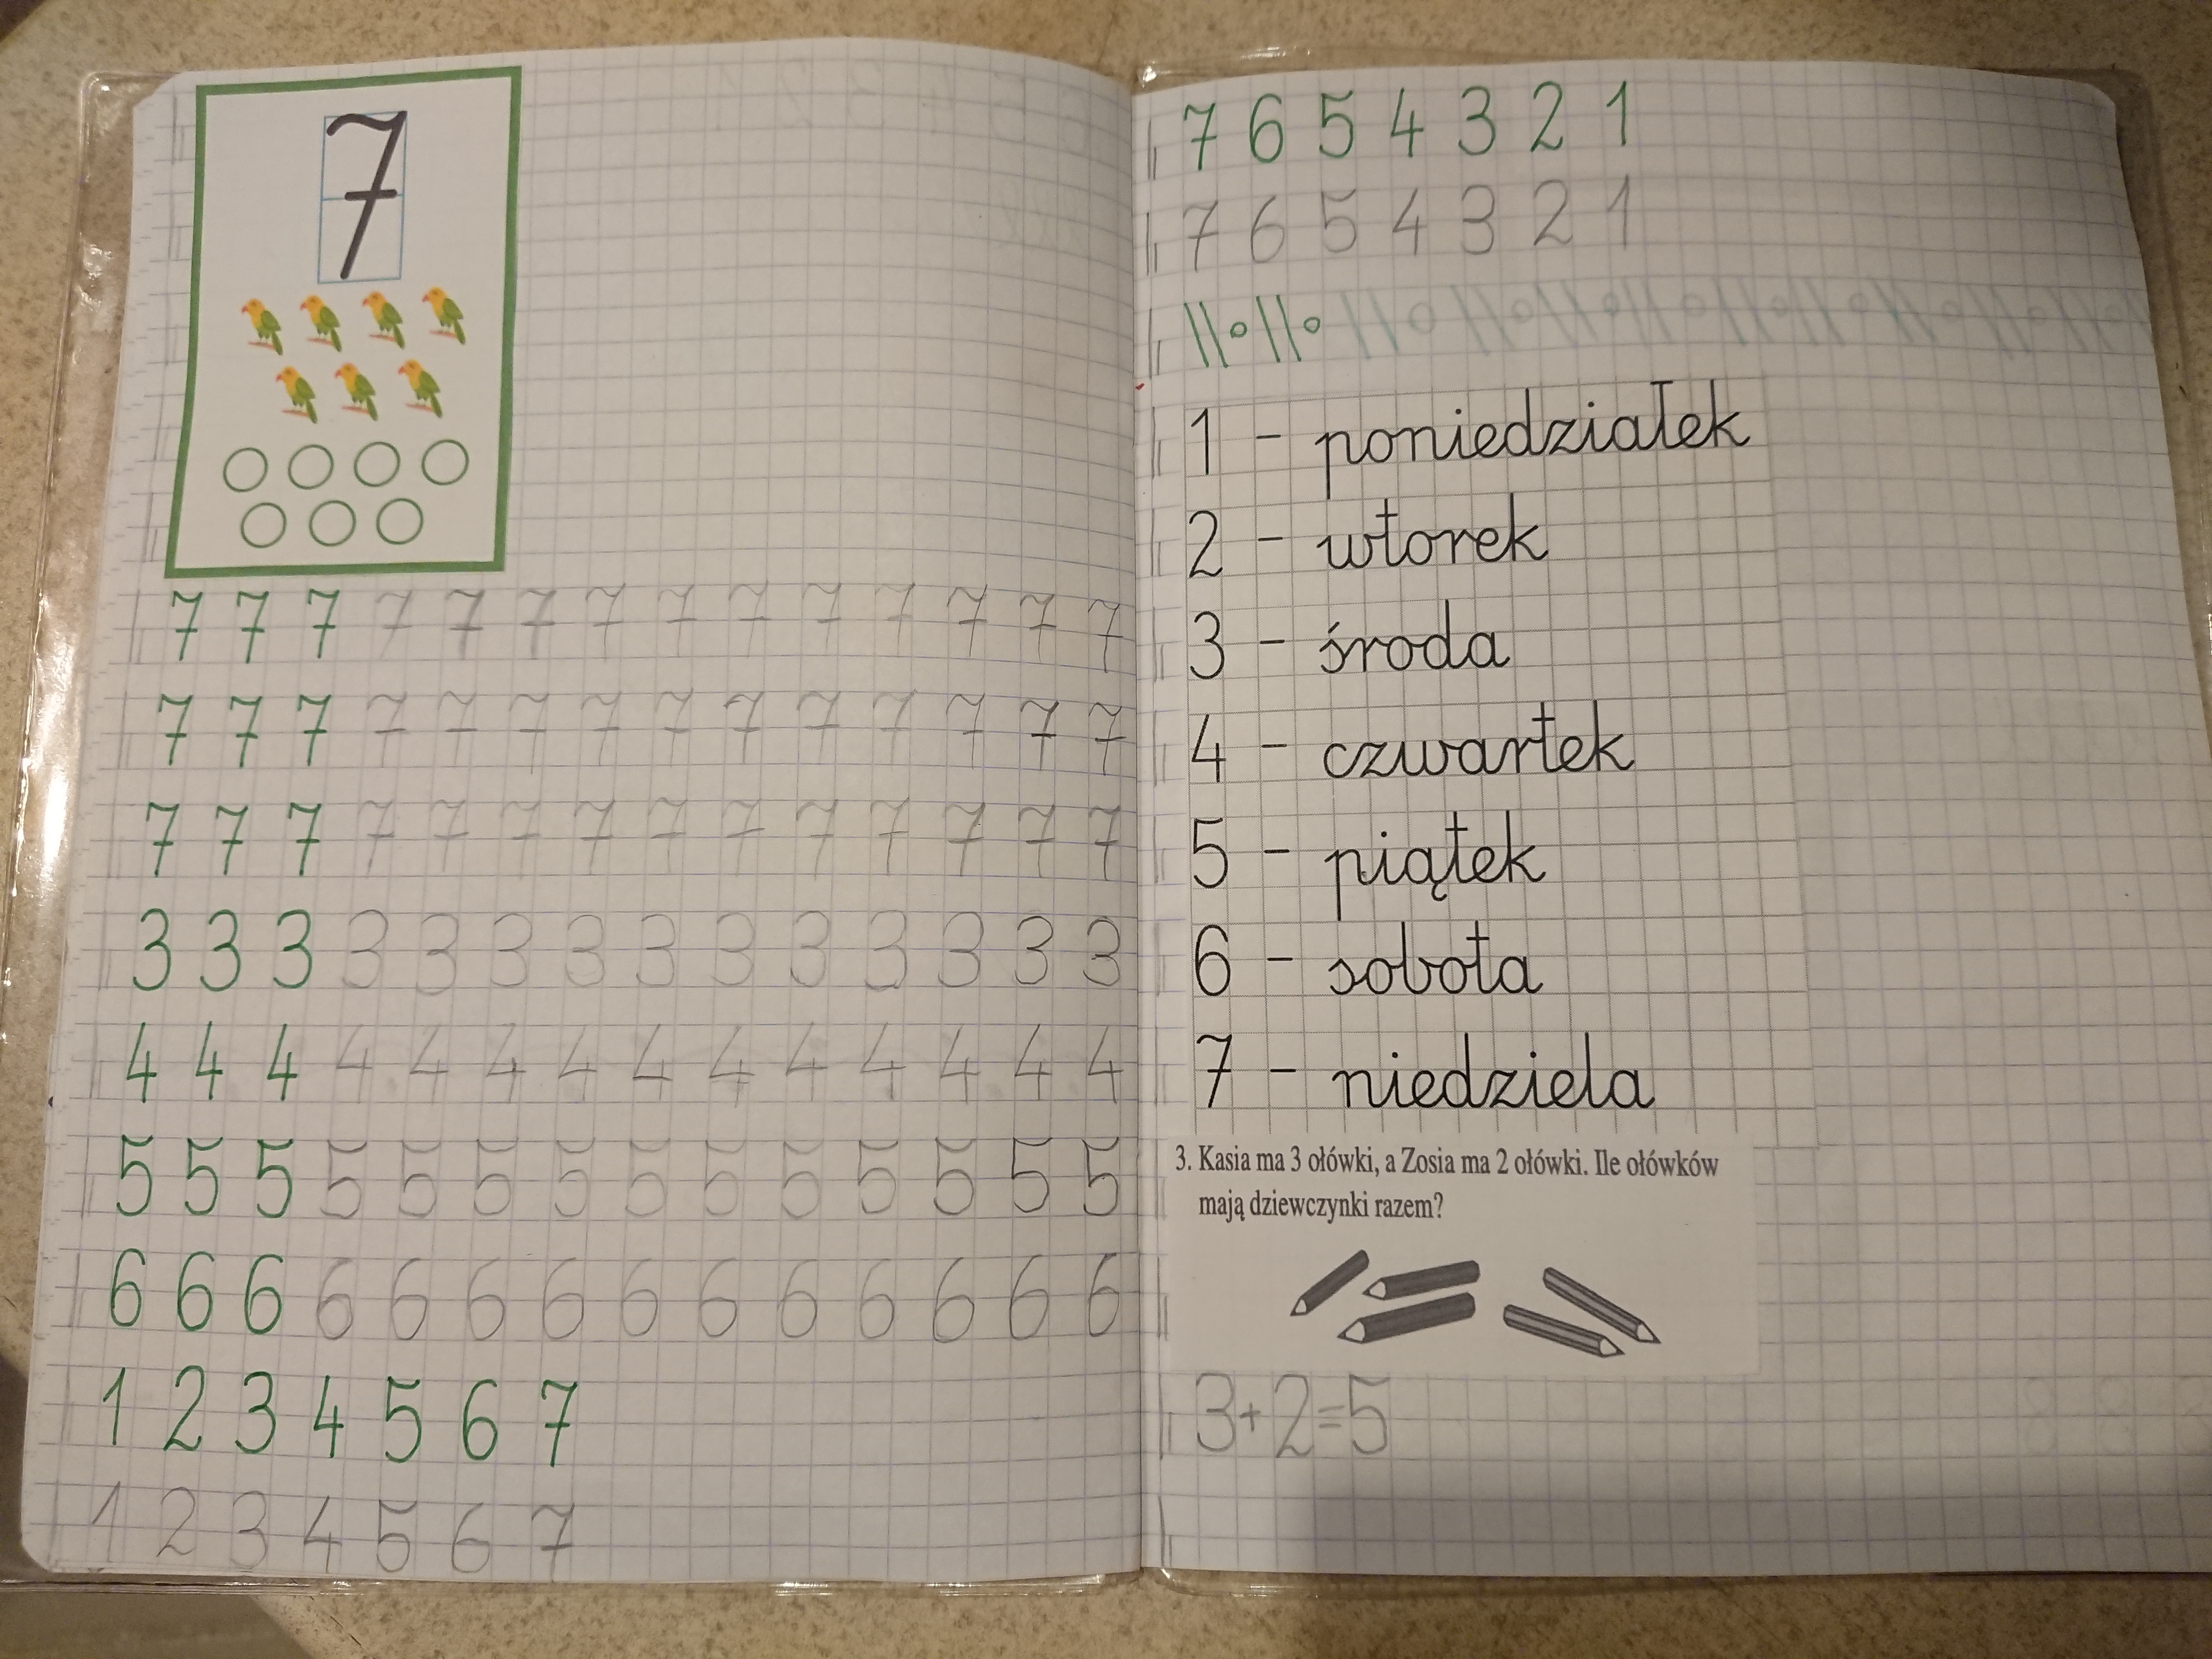 7
7 7 7 7 7 7 7 7 7 7 7 7 7 7
7 7 7 7 7 7 7 7 7 7 7 7 7 7
7 7 7 7 7 7 7 7 7 7 7 7 7 7
3 3 3 3 3 3 3 3 3 3 3 3 3 3
4 4 4 4 4 4 4 4 4 4 4 4 4 4
5 5 5 5 5 5 5 5 5 5 5 5 5 5
6 6 6 6 6 6 6 6 6 6 6 6 6 6
1 2 3 4 5 6 7
1 2 3 4 5 6 7
7 6 5 4 3 2 1
7 6 5 4 3 2 1
1 - poniedziałek
2 - wtorek
3 - środa
4 - czwartek
5 - piątek
6 - sobota
7 - niedziela
3. Kasia ma 3 ołówki, a Zosia ma 2 ołówki. Ile ołówków
mają dziewczynki razem?
3+2=5